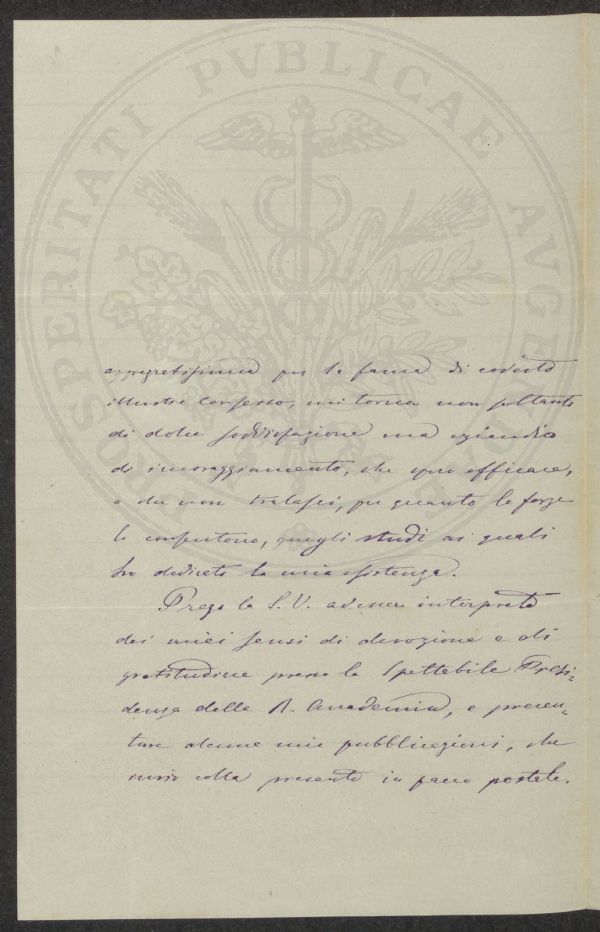 PROSPERITATI PVBLICAE AVGENDAE
per la fama di codesto
illustre Consesso, mi torna non soltanto
di dolce soddisfazione ma eziandio
di incoraggiamento, che spero efficace,
a che non tralasci, per quanto le forze
lo consentono, quegli studi ai quali
ho dedicato la mia esistenza.
Prego la S. V. ad essere interprete
dei miei sensi di devozione e di
gratitudine presso la Spettabile Presi-
denza della R. Accademia, e presen-
tare alcune mie pubblicazioni, che
invio colla presente in pacco postale.